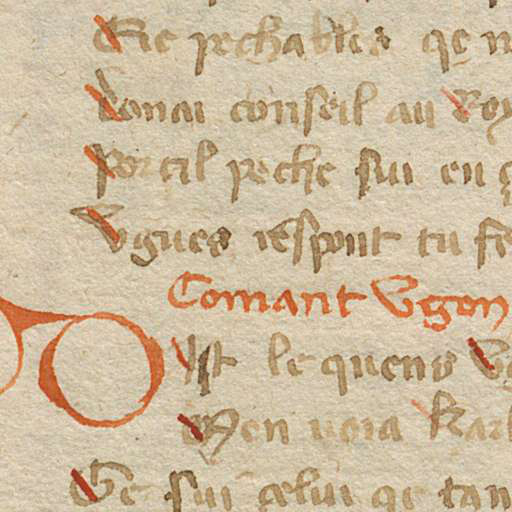 Gie pechables qe
Donai conseil au Roy
Por cil peche sui en
Vgues respont tu
Comant Vgon
Dist le quens
Men uoia Karl
Ge sui celui qe tan